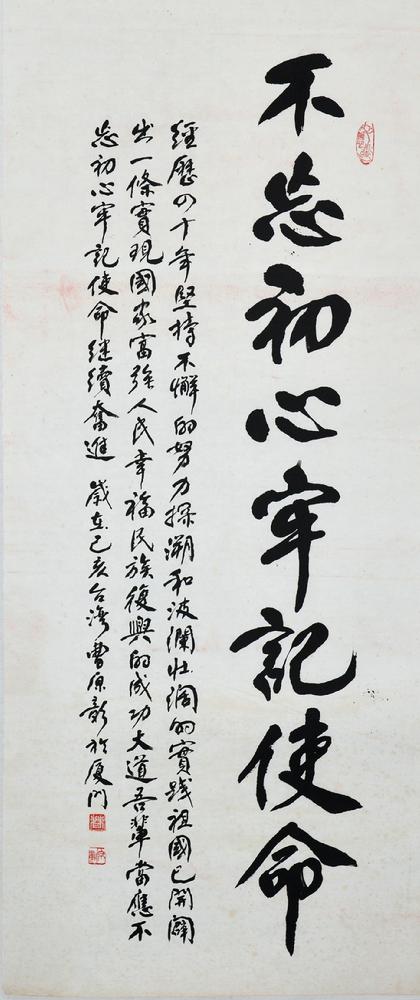 不忘初心牢記使命
經歷四十年堅持不懈的努力探溯和波瀾壯闊的實踐祖國已開闢
出一條實現國家富強人民幸福民族復興的成功大道吾輩當應不
忘初心牢記使命继續奮進 歲在己亥台湾曹原彰於厦門